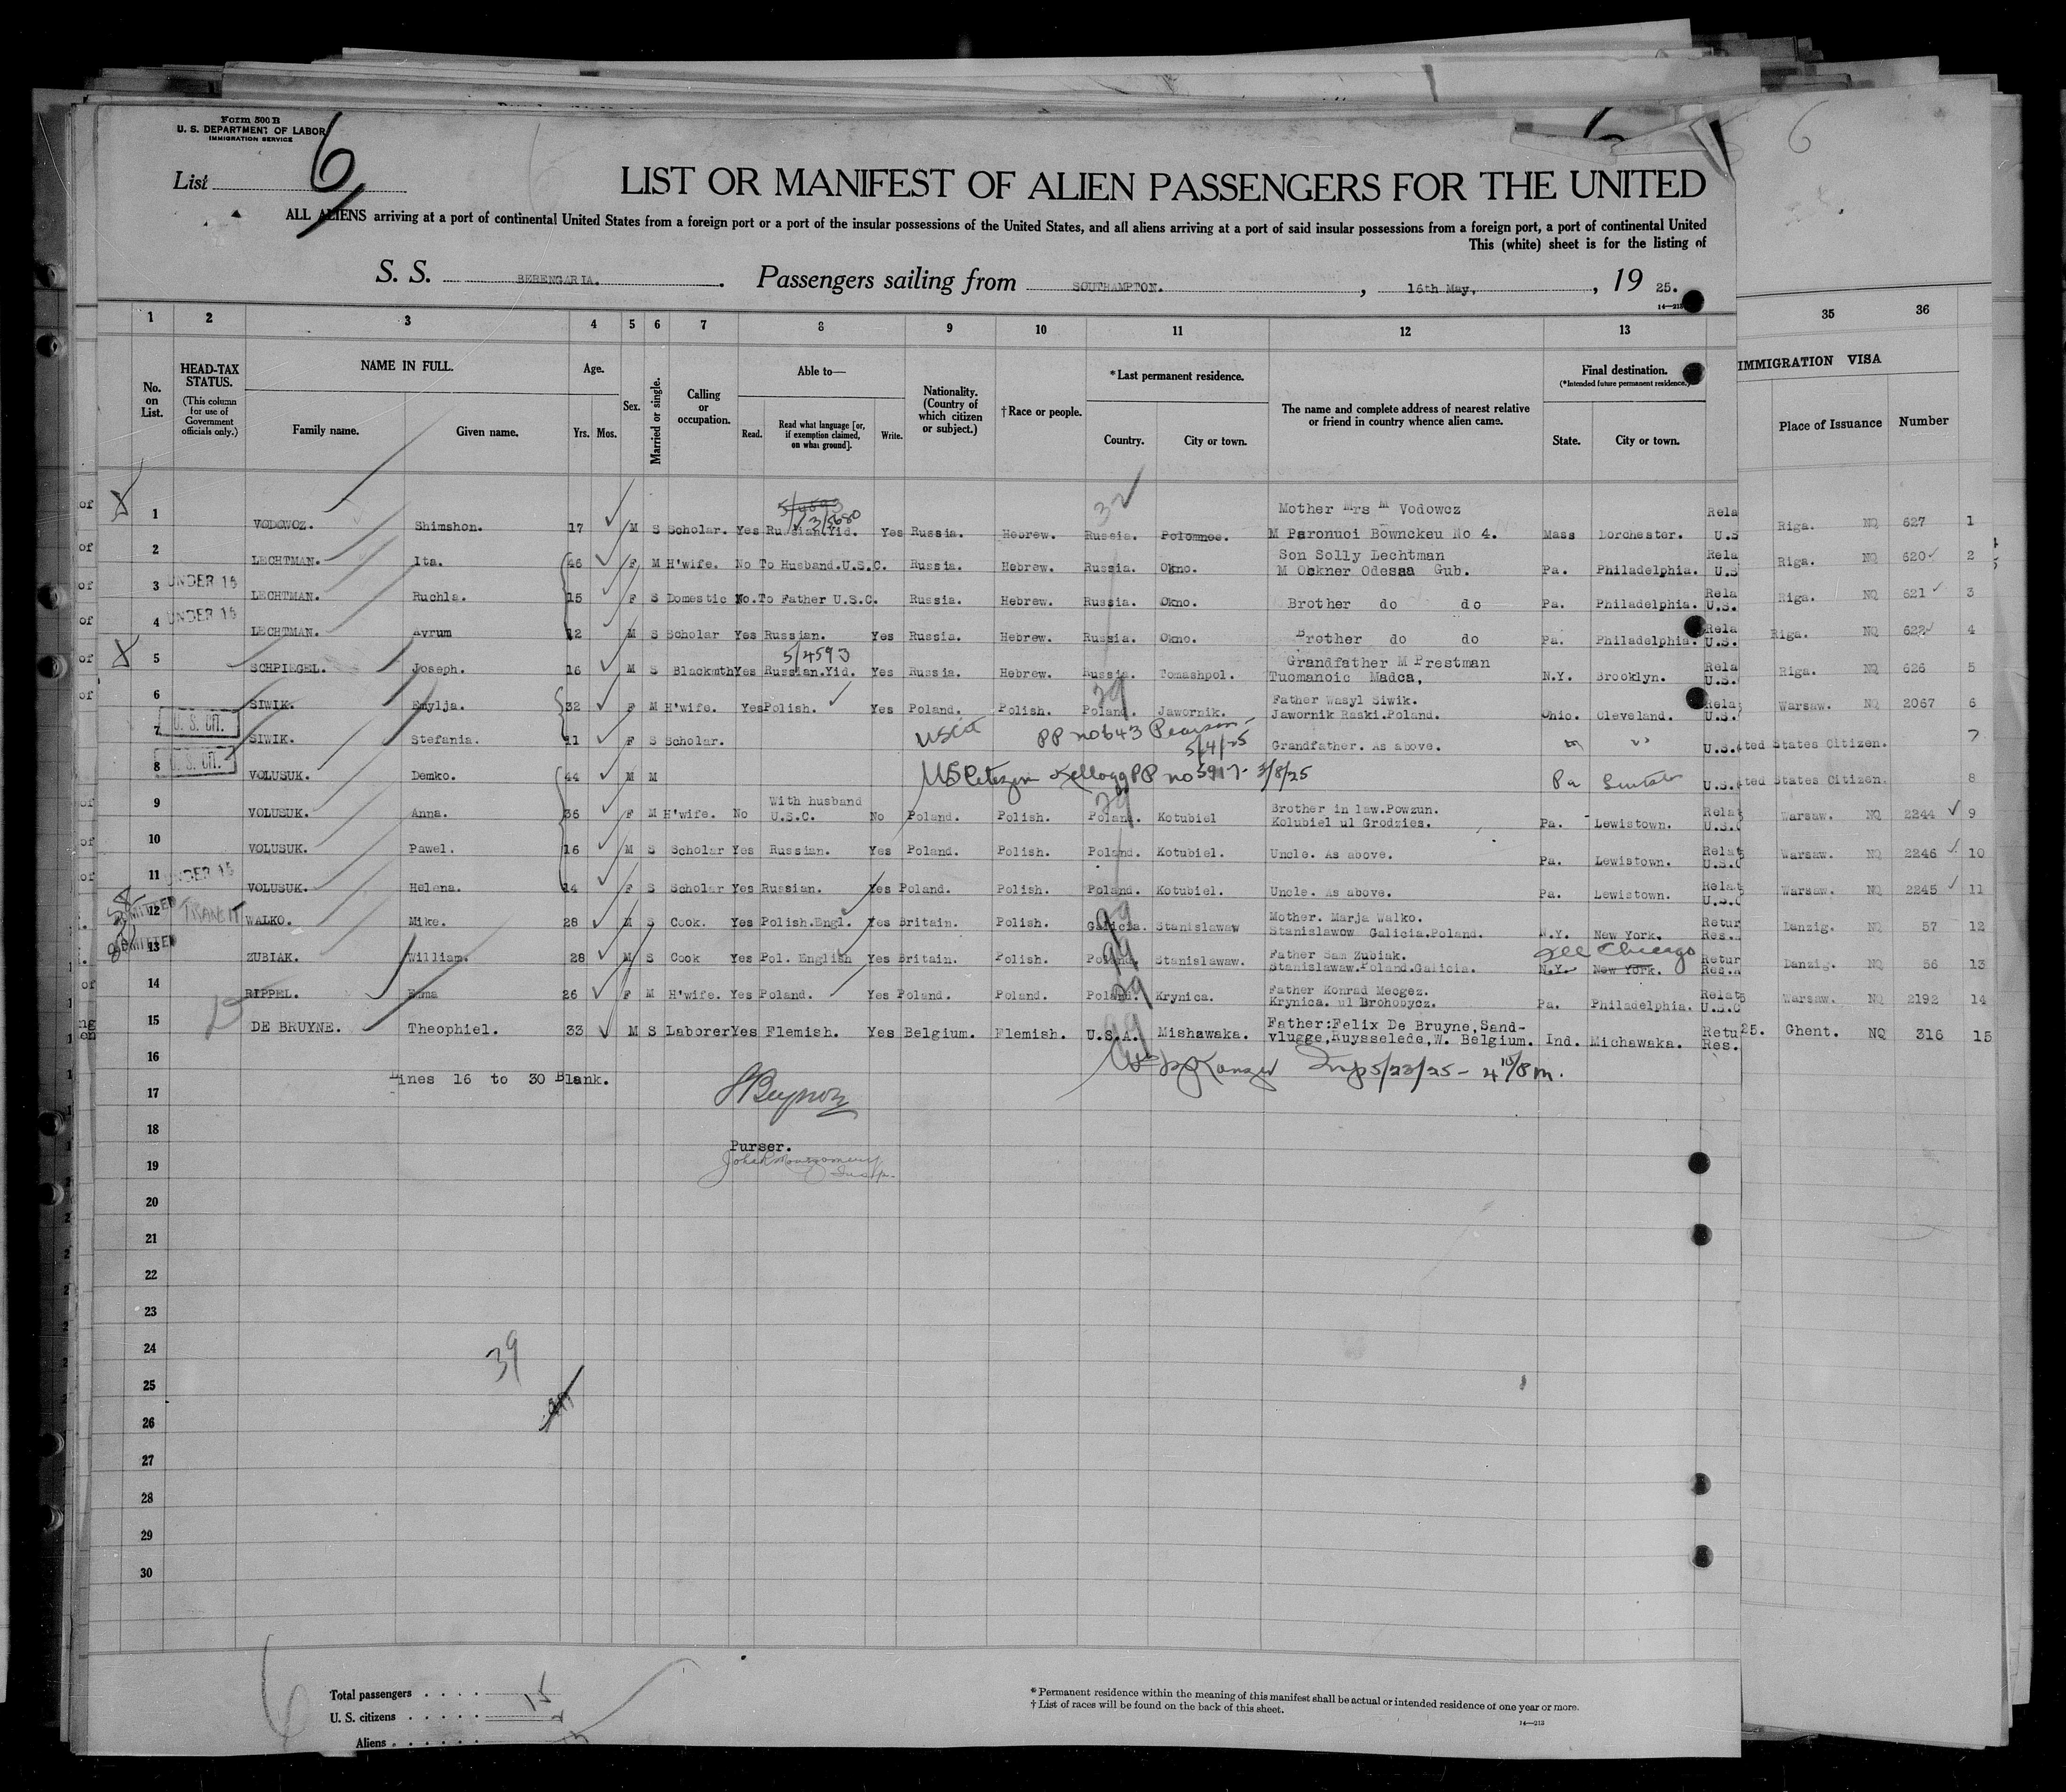 Form 500 B
U. S. DEPARTMENT OF LABOR
IMMIGRATION SERVICE
List 6
6
LIST OR MANIFEST OF ALIEN PASSENGERS FOR THE UNITED
ALL ALIENS arriving at a port of continental United States from a foreign port or a port of the insular possessions of the United States, and all aliens arriving at a port of said insular possessions from a foreign port, a port of continental United
This (white) sheet is for the listing of
S. S. BERENGARIA. Passengers sailing from SOUTHAMPTON. , 16th May, , 19 25.
14—213
1 2 3 4 5 6 7 8 9 10 11 12 13 35 36
No. on List.
HEAD-TAX STATUS.
(This column for use of Government officials only.)
NAME IN FULL.
Family name. Given name.
Age.
Yrs. Mos.
Sex.
Married or single.
Calling or occupation.
Able to—
Read. Read what language [or, if exemption claimed, on what ground]. Write.
Nationality. (Country of which citizen or subject.)
†Race or people.
*Last permanent residence.
Country. City or town.
The name and complete address of nearest relative or friend in country whence alien came.
Final destination.
(*Intended future permanent residence.)
State. City or town.
IMMIGRATION VISA
Place of Issuance Number
5/4593
3/5680
Mother Mrs M Vodowoz Rela
of X 1 VODOWOZ. Shimshon. 17 M S Scholar. Yes Russian.Yid. Yes Russia. Hebrew. Russia. Polonnoe. M Paronuoi Bownckeu No 4. Mass Dorchester. U.S Riga. NQ 627 1
Son Solly Lechtman Rela
of 2 LECHTMAN. Ita. 46 F M H'wife. No To Husband.U.S.C. Russia. Hebrew. Russia. Okno. M Okner Odessa Gub. Pa. Philadelphia. U.S Riga. NQ 620 2
of 3 UNDER 16 LECHTMAN. Ruchla. 15 F S Domestic No.To Father U.S.C. Russia. Hebrew. Russia. Okno. Brother do do Pa. Philadelphia. Rela U.S. Riga. NQ 621 3
of 4 UNDER 16 LECHTMAN. Avrum 12 M S Scholar Yes Russian. Yes Russia. Hebrew. Russia. Okno. Brother do do Pa. Philadelphia. Rela U.S. Riga. NQ 622 4
5/4593
Grandfather M Prestman Rela
of X 5 SCHPIEGEL. Joseph. 16 M S Blackmth Yes Russian.Yid. Yes Russia. Hebrew. Russia. Tomashpol. Tuomanoic Madca, N.Y. Brooklyn. U.S. Riga. NQ 626 5
Father Wasyl Siwik. Rela
of 6 SIWIK. Emylja. 32 F M H'wife. Yes Polish. Yes Poland. Polish. Poland. Jawornik. Jawornik Raski.Poland. Ohio. Cleveland. U.S. Warsaw. NQ 2067 6
7 U. S. CIT. SIWIK. Stefania. 11 F S Scholar. US Cit PP no 643 Pearson 5/4/25 Grandfather. As above. U.S. ted States Citizen. 7
8 U. S. CIT. VOLUSUK. Demko. 44 M M US Citizen Kellogg PP no 5917- 3/8/25 Pa U.S. ted States Citizen. 8
With husband Brother in law.Powzun. Rela
of 9 VOLUSUK. Anna. 36 F M H'wife. No U.S.C. No Poland. Polish. Poland. Kotubiel Kolubiel ul Grodzies. Pa. Lewistown. U.S.C Warsaw. NQ 2244 9
of 10 VOLUSUK. Pawel. 16 M S Scholar Yes Russian. Yes Poland. Polish. Poland. Kotubiel. Uncle. As above. Pa. Lewistown. Relat U.S.C Warsaw. NQ 2246 10
of 11 UNDER 16 VOLUSUK. Helena. 14 F S Scholar Yes Russian. Yes Poland. Polish. Poland. Kotubiel. Uncle. As above. Pa. Lewistown. Relat U.S.C Warsaw. NQ 2245 11
Mother. Marja Walko. Retur
ADMITTED 12 TRANSIT WALKO. Mike. 28 M S Cook. Yes Polish.Engl. Yes Britain. Polish. Galicia. Stanislawaw Stanislawow Galicia.Poland. N.Y. New York. Res. Danzig. NQ 57 12
See Chicago
Father Sam Zubiak. Retur
ADMITTED 13 ZUBIAK. William. 28 M S Cook Yes Pol. English Yes Britain. Polish. Poland. Stanislawaw. Stanislawaw.Poland.Galicia. N.Y. New York. Res. Danzig. NQ 56 13
Father Konrad Mecgez. Relat
of 14 RIPPEL. Emma 26 F M H'wife. Yes Poland. Yes Poland. Poland. Poland. Krynica. Krynica. ul Brohobycz. Pa. Philadelphia. U.S.C Warsaw. NQ 2192 14
Father:Felix De Bruyne,Sand- Retu
15 DE BRUYNE. Theophiel. 33 M S Laborer Yes Flemish. Yes Belgium. Flemish. U.S.A. Mishawaka. vlugge,Ruysselede,W. Belgium. Ind. Michawaka. Res. 25. Ghent. NQ 316 15
16
Lines 16 to 30 Blank.
17
18
Purser.
John Montgomery
19
20
21
22
23
24
39
25
26
27
28
29
30
Total passengers . . . . 15
U. S. citizens . . . . . 2
Aliens . . . . . . 13
* Permanent residence within the meaning of this manifest shall be actual or intended residence of one year or more.
† List of races will be found on the back of this sheet.
14—213